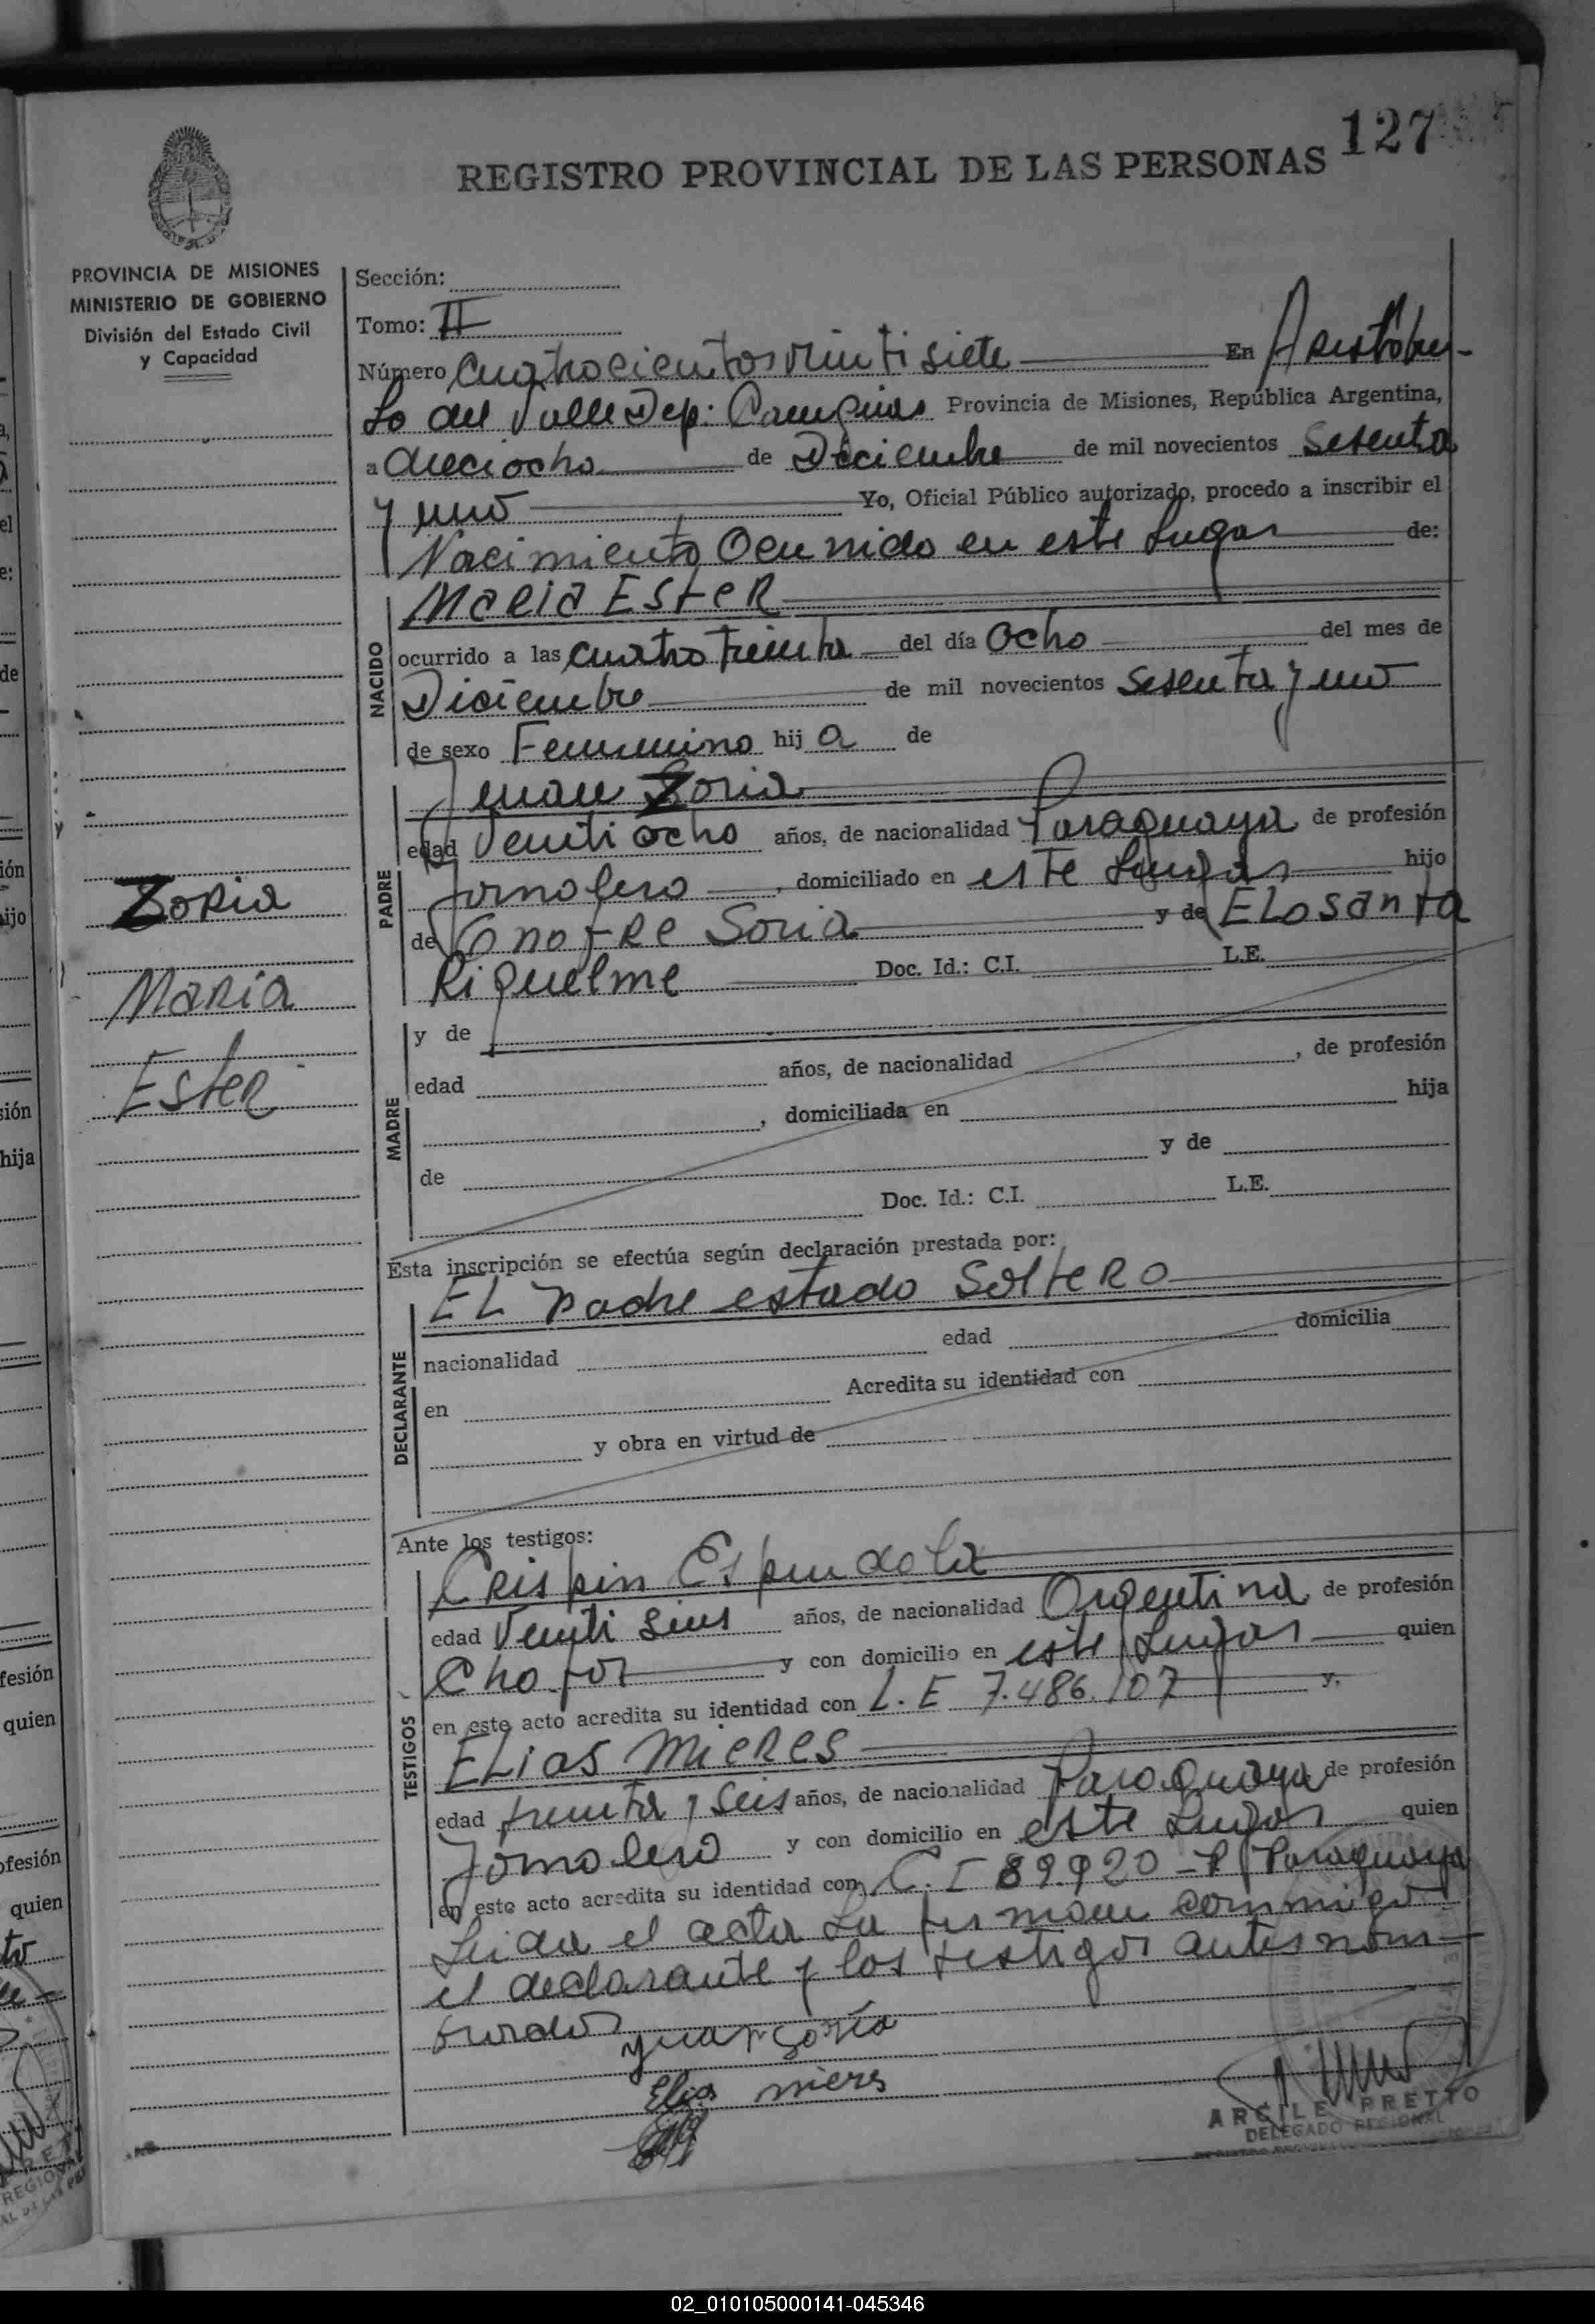 127
REGISTRO PROVINCIAL DE LAS PERSONAS
PROVINCIA DE MISIONES
MINISTERIO DE GOBIERNO
División del Estado Civil
y Capacidad
Sección:
Tomo: II
Número Cuatrocientos veinti siete En Aristóbu-
lo del Valle Dep: Cainguas Provincia de Misiones, República Argentina,
a dieciocho de Diciembre de mil novecientos sesenta
y uno Yo, Oficial Público autorizado, procedo a inscribir el
Nacimiento Ocurrido en este Lugar de:
NACIDO
MARIA ESTER
ocurrido a las cuatro treinta del día Ocho del mes de
Diciembre de mil novecientos sesenta y uno
de sexo Femenino hij a de
PADRE
Juan Zoria
edad Veinti ocho años, de nacionalidad Paraguaya de profesión
Jornalero, domiciliado en este Lugar hijo
de Onofre Soria y de Elosanta
Riquelme Doc. Id.: C.I. L.E.
Zoria
Maria
Ester
MADRE
y de
edad años, de nacionalidad , de profesión
, domiciliada en hija
de y de
Doc. Id.: C.I. L.E.
Esta inscripción se efectúa según declaración prestada por:
DECLARANTE
EL Padre estado Soltero
nacionalidad edad domicilia
en Acredita su identidad con
y obra en virtud de
Ante los testigos:
TESTIGOS
Crispin Espindola
edad Veinti seis años, de nacionalidad Argentina de profesión
Chofor y con domicilio en este Lugar quien
en este acto acredita su identidad con L.E 7.486.107 y,
Elias Mieres
edad treinta y seis años, de nacionalidad Paraguaya de profesión
Jornalero y con domicilio en este Lugar quien
en este acto acredita su identidad con C.I 89.920 - P Paraguaya
Leida el acta La firman conmigo
el declarante y los testigos antes nom-
brados
Juan Soria
Elias mieres
ARCILE PRETTO
DELEGADO REGIONAL
02_010105000141-045346